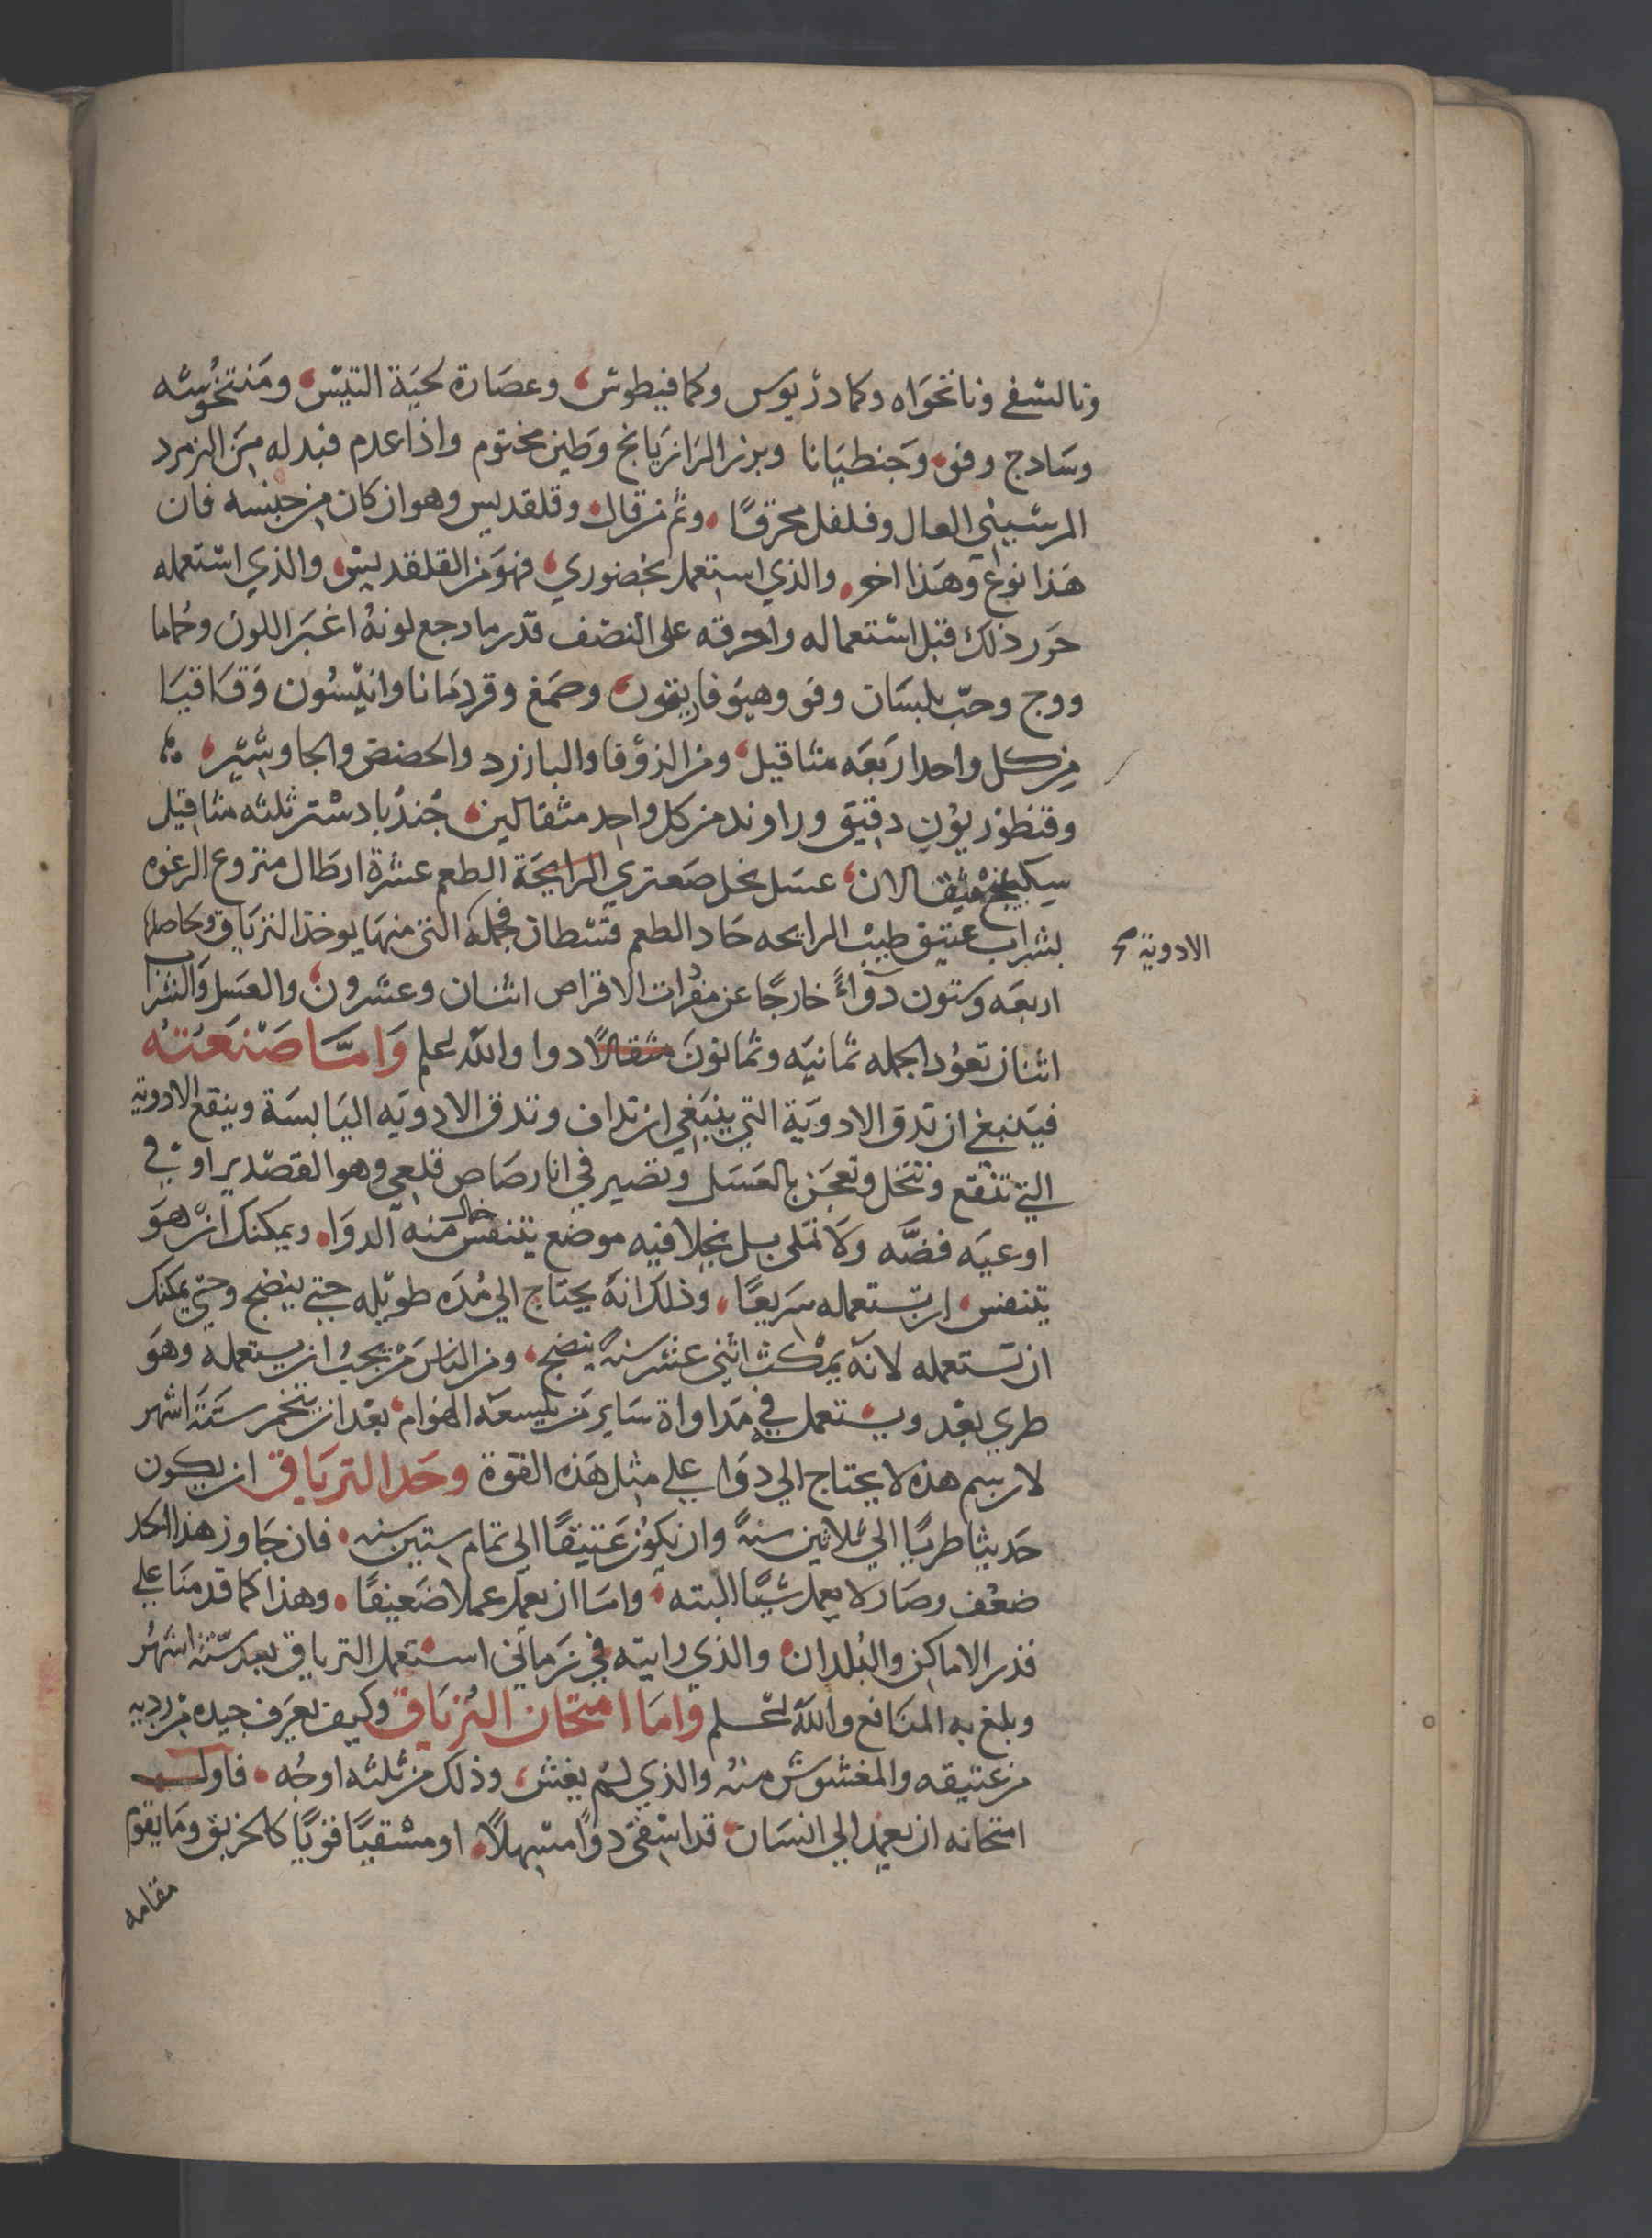 وتالشفي ونانخواه وكمادريوس وكمافيطوش وعصارة لحية التيس ومنتخوشه
وسادج وفو وجنطيانا وبزر الرازيانج وطين مختوم واذا عدم فبدله من الزمرد
المرسيني العال وفلفل محرقًا وثم قال وقلقديس وهو ان كان من جنسه فان
هذا نوع وهذا اخر والذي استعمل بحضوري فهو من القلقديس والذي استعمله
حور ذلك قبل استعماله واحرقه على النصف قدر ما رجع لونه اغبر اللون وحماما
ووج وحب بلسان وفو وهيوفاريقون وصمغ وقردمانا وانيسون وقاقيا
من كل واحد اربعه مثاقيل ومن الزوفا والبازرد والحضض والجاوشير
وقنطوريون دقيق وراوند من كل واحد مثقالين جندبادستر ثلثه مثاقيل
سكبينج مثقالان عسل نحل صعتري الرايحة الطعم عشرة ارطال منزوع الرغوه
بشراب عتيق طيب الرايحه حاد الطعم قسطان فجملة التي منها يوخذ الترياق وحاصلها
الادوية صح
اربعه وستون دواءً خارجًا عن مفردات الاقراص اثنان وعشرون والعسل والشراب
اثنان تعود الجمله ثمانيه وثمانون مثقالًا دوا والله اعلم وامّا صنعته
فينبغي ان تدق الادوية التي ينبغي ان تداف وتدق الادويه اليابسة وينقع الادوية
التي تنقع وتنخل وتعجن بالعسل وتصير في انا رصاص قلعي وهو القصدير او في
اوعيه فضّه ولا تملى بل يخلا فيه موضع خال يتنفس منه الدواء ويمكنك ان هو
يتنفس ان تستعمله سريعًا وذلك انه يحتاج الي مده طويله حتى ينضج وحتى يمكنك
ان تستعمله لانه يمكث اثني عشر سنة ينضج ومن الناس من يحب ان يستعمله وهو
طري بعد ويستعمل في مداواة ساير من تلسعه الهوام بعد ان يتخمر ستة اشهر
لان سم هذه لا يحتاج الي دوا على مثل هذه القوة وحد الترياق ان يكون
حديثا طريًا الي ثلاثين سنةً وان يكون عتيقًا الي تمام ستين سنه فان جاوز هذا الحد
ضعف وصار لا يعمل شيًا البته واما ان يعمل عملا ضعيفًا وهذا كما قدمنا على
قدر الاماكن والبلدان والذي رايته في زماني استعمل الترياق بعد ستة اشهر
وبلغ به المنافع والله اعلم واما امتحان الترياق وكيف تعرف جيده من رديه
من عتيقه والمغشوش منه والذي لم يغش وذلك من ثلثه اوجه فاول
امتحانه ان يعمد الي انسان قد اسقى دوًا مسهلًا او مسقيًا قويًا كالخربق وما يقوم
مقامه